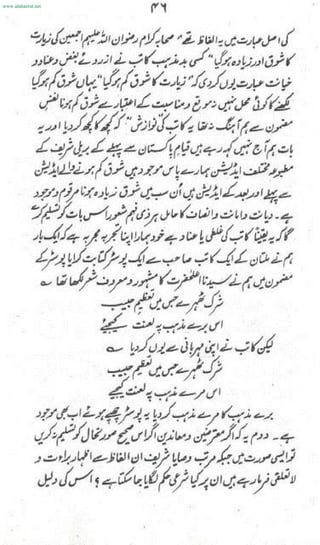 www.alahazrat.net
۴۶
کی اصل عبارت میں یہ الفاظ تھے "صحابہ کرام رضوان اللہ علیہم اجمعین کی زیارت
کا شوق اور زیادہ ہو گیا" کسی بد مذہب کاتب نے ازروئے بغض و عناد و
خیانت عبارت یوں کر دی کہ "زیارت کا شوق کم ہو گیا" یہاں شوق کم ہو گیا
لکھنے کا کوئی محل نہیں نہ موقع و مناسبت کے اعتبار سے شوق کم ہونا نفس
مضمون سے ہم آہنگ نہ تھا یہ کاتب کی نوازش کہ کچھ کا کچھ کر دیا اور یہ
بات ہم آج نہیں کہہ رہے ہیں قیام پاکستان سے پہلے کے بریلی شریف کے
مطبوعہ مختلف ایڈیشن ہمارے پاس موجود ہیں شوق کم ہونے والے ایڈیشن
سے پہلے اور بعد کے ایڈیشن ہیں ان سب میں شوق زیادہ ہونا مرقوم و موجود
ہے۔ دیانت و امانت و انصاف کا حامل ہر ذی فہم شعور اس بات کو تسلیم کرے
گا کہ یہ یقیناً کاتب کی غلطی یا عناد ہے خود ہمارا اپنا تجربہ ہے کہ ایک بار
ہم نے ملتان کے ایک کاتب صاحب سے ایک پوسٹر کتابت کرایا پوسٹر کے
مضمون میں ہم نے سیدنا اعلیٰحضرت کا مشہور و معروف شعر لکھا تھا
شرک ٹھہرے جس میں تعظیم حبیب
اس برے مذہب پہ لعنت کیجئے
لیکن کاتب نے اپنی مہربانی سے یوں کر دیا
شرک ٹھہرے جس میں تعظیم حبیب
اس مرے مذہب پہ لعنت کیجئے
برے مذہب کا مرے مذہب کر دیا یہ پوسٹر چھپے ہوئے اب بھی موجود
ہے۔ دوم یہ کہ اگر معترضین و معاندین اگر اس صحیح صورتحال کو تسلیم نہ کریں
تو ایسی صورت میں جبکہ مرتب وصایا شریف ان الفاظ سے اظہار براءت و
لا تعلقی فرما رہے ہیں ان پر کیا شرعی حکم لگایا جا سکتا ہے؟ اس کی دلیل